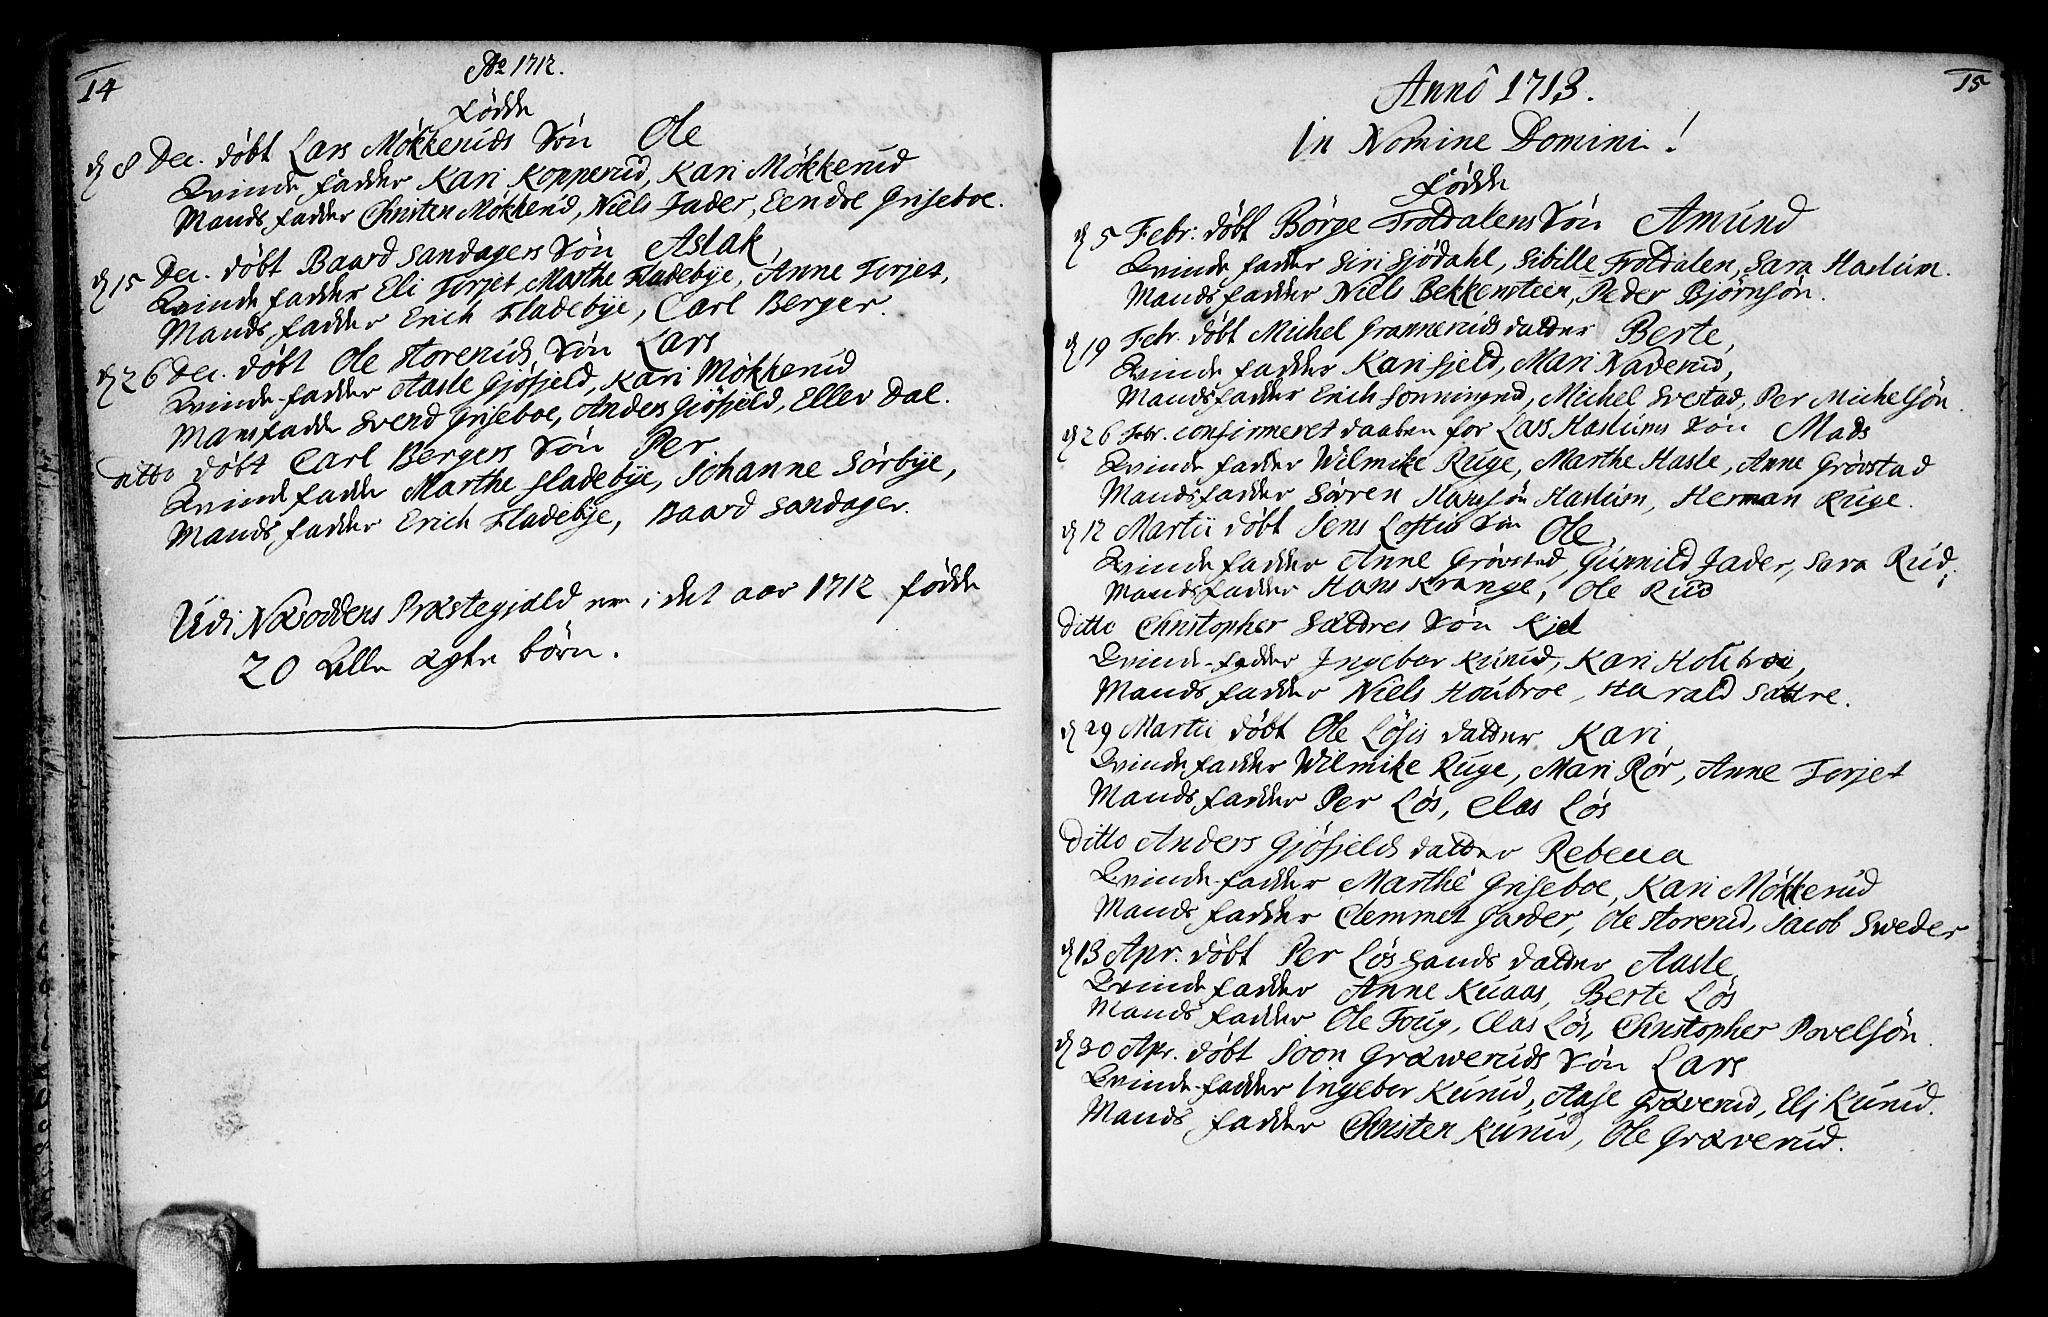 14
Aº 1712.
Födde
d 8 Dec. döbt Lars Mökkeruds Sön Ole
Qvinde fadder Kari Kopperud, Kari Mökkerud
Mands fadder Christen Mökkerud, Niels Jader, Eendre Griseboe.
d 15 Dec. döbt Baard Sandagers Sön Aslak,
Qvinde fadder Eli Torjet, Marthe Fladebye, Anne Torjet,
Mands fadder Erich Fladebye, Carl Berger.
d 26 Dec. döbt Ole Storeruds Sön Lars
Qvinde fadder Aasle Gjöfjeld, Kari Mökkerud
Mans fadder Svend Griseboe, Anders Giöfjeld, Ellev Dal.
ditto döbt Carl Bergers Sön Per
Qvinde fadder Marthe Fladebye, Johanne Sörbye,
Mands fadder Erich Fladebye, Baard Sandager.
Udi Næsoddens Præstegjæld ere i det aar 1712 födde
20 Alle ægte börn.
15
Annô 1713.
In Nomine Domini!
Födde
d 5 Febr. döbt Börge Troldalens Sön Amund
Qvinde fadder Siri Sjödahl, Sibille Troldalen, Sara Haslum.
Mands fadder Niels Bekkensteen, Peder Björnsön.
d 19 Febr. döbt Michel Granneruds datter Berte,
Qvinde fadder Kari fjeld, Mari Naderud,
Mands fadder Erich Sonningrud, Michel Svestad, Per Michelsön.
d 26 Febr. confirmeret daaben for Lars Haslums Sön Mads
Qvinde fadder Wilmike Ruge, Marthe Hasle, Anne Grövstad
Mands fadder Sören Hansön Haslum, Herman Ruge.
d 12 Martii döbt Jens Loftes Sön Ole,
Qvinde fadder Anne Grövstad, Gunnild Jader, Sara Rud,
Mands fadder Hans Krange, Ole Rud
ditto Christopher Sættres Sön Kjel
Qvinde fadder Ingebor Kurud, Kari Houbroe,
Mands fadder Niels Houbroe, Harald Sættre.
d 29 Martii döbt Ole Lösis datter Kari
Qvinde fadder Wilmike Ruge, Mari Rör, Anne Torjet
Mands fadder Per Lös, Clas Lös
ditto Anders Gjöfjelds datter Rebecca
Qvinde fadder Marthe Griseboe, Kari Mökkerud
Mands fadder Clemmet Garder, Ole Storerud, Jacob Sweder
d 13 Apr. döbt Per Lössands datter Aasle,
Qvinde fadder Anne Kuaas, Berte Lös
Mands fadder Ole Toug, Clas Lös, Christopher Povelsön.
d 30 Apr. döbt Joon Græweruds Sön Lars
Qvinde fadder Ingebor Kurud, Aase Græverud, Elj Kurud.
Mands fadder Christen Kurud, Ole Græverud.